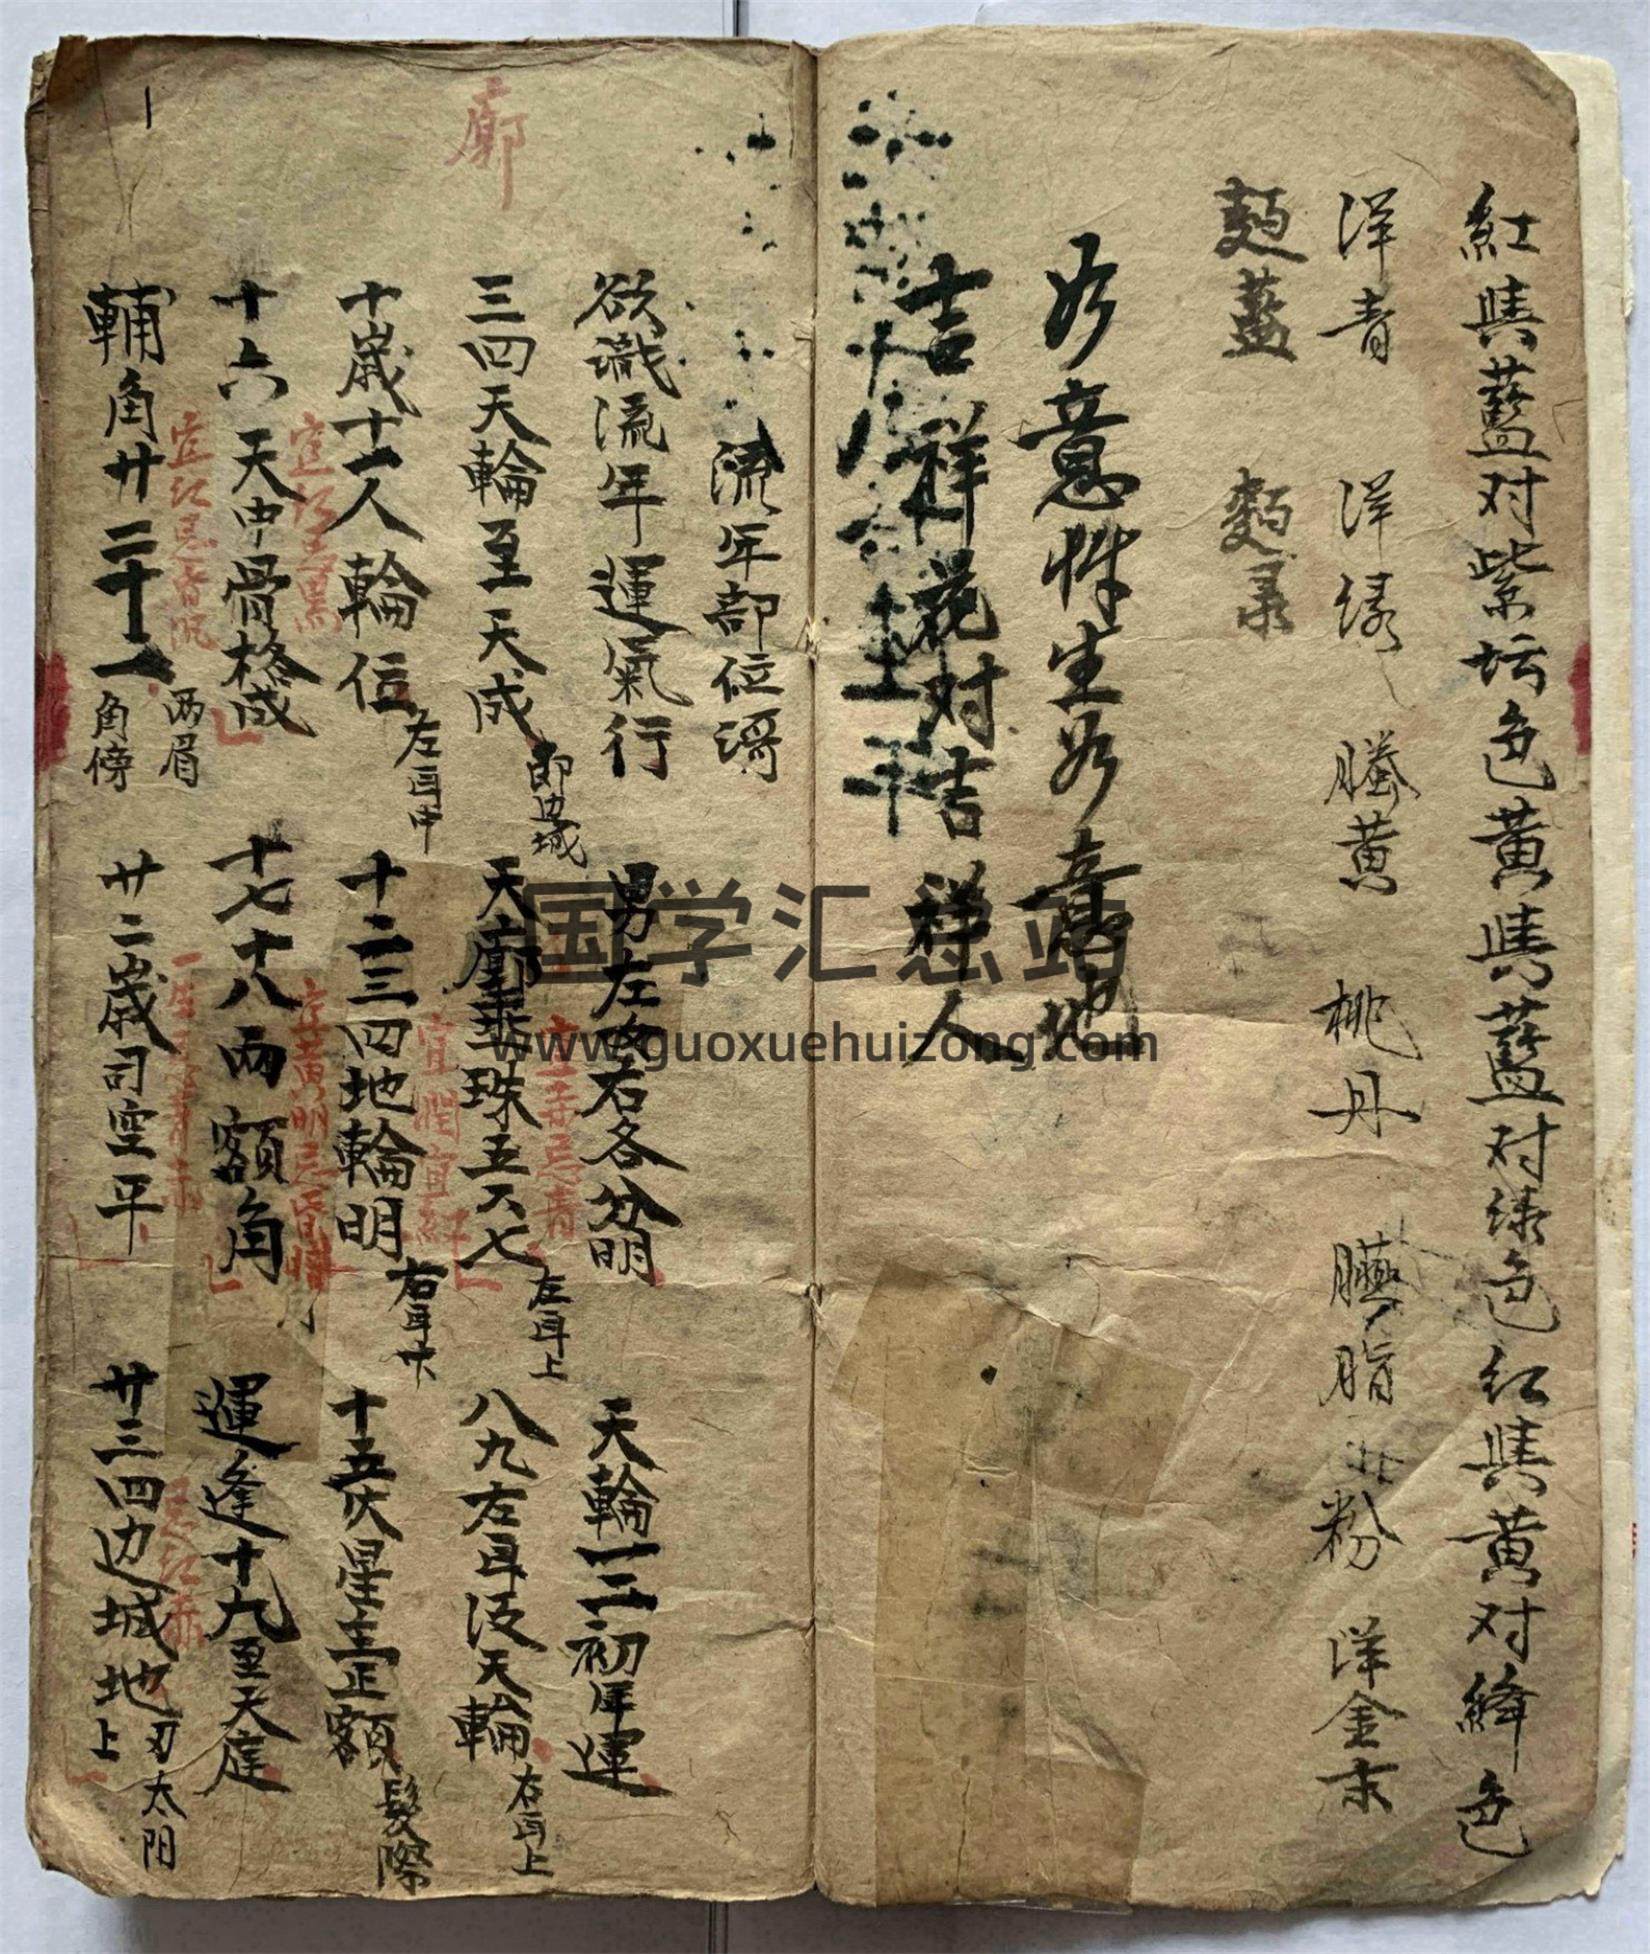 紅與藍对紫坛色黄與藍对绿色红與黄对絳色
洋青 洋绿 騰黄 桃丹 臙脂 粉 洋金末
麪藍 麪录
为意牲生为意地
吉祥花对吉祥人
流年部位謌
欲識流年運氣行 男左女右各分明 天輪一二初年運
三四天輪至天成 即边城 天廓垂珠五六七 左耳上 八九左耳没天輪 右耳上
十歲十一人輪信 左耳中 十二三四地輪明 右耳下 十五火星主正額 髮際
十六天中骨格成 十七十八兩額角 運逢十九至天庭
輔角廿二十一 两眉角傍 廿二歲司空平 廿三四边城地 刃太阳上
廓
宜红忌黑
宜红忌昏沉
宜黄明忌昏暗
宜潤宜紅
忌红赤
国学汇总站
www.guoxuehuizong.com